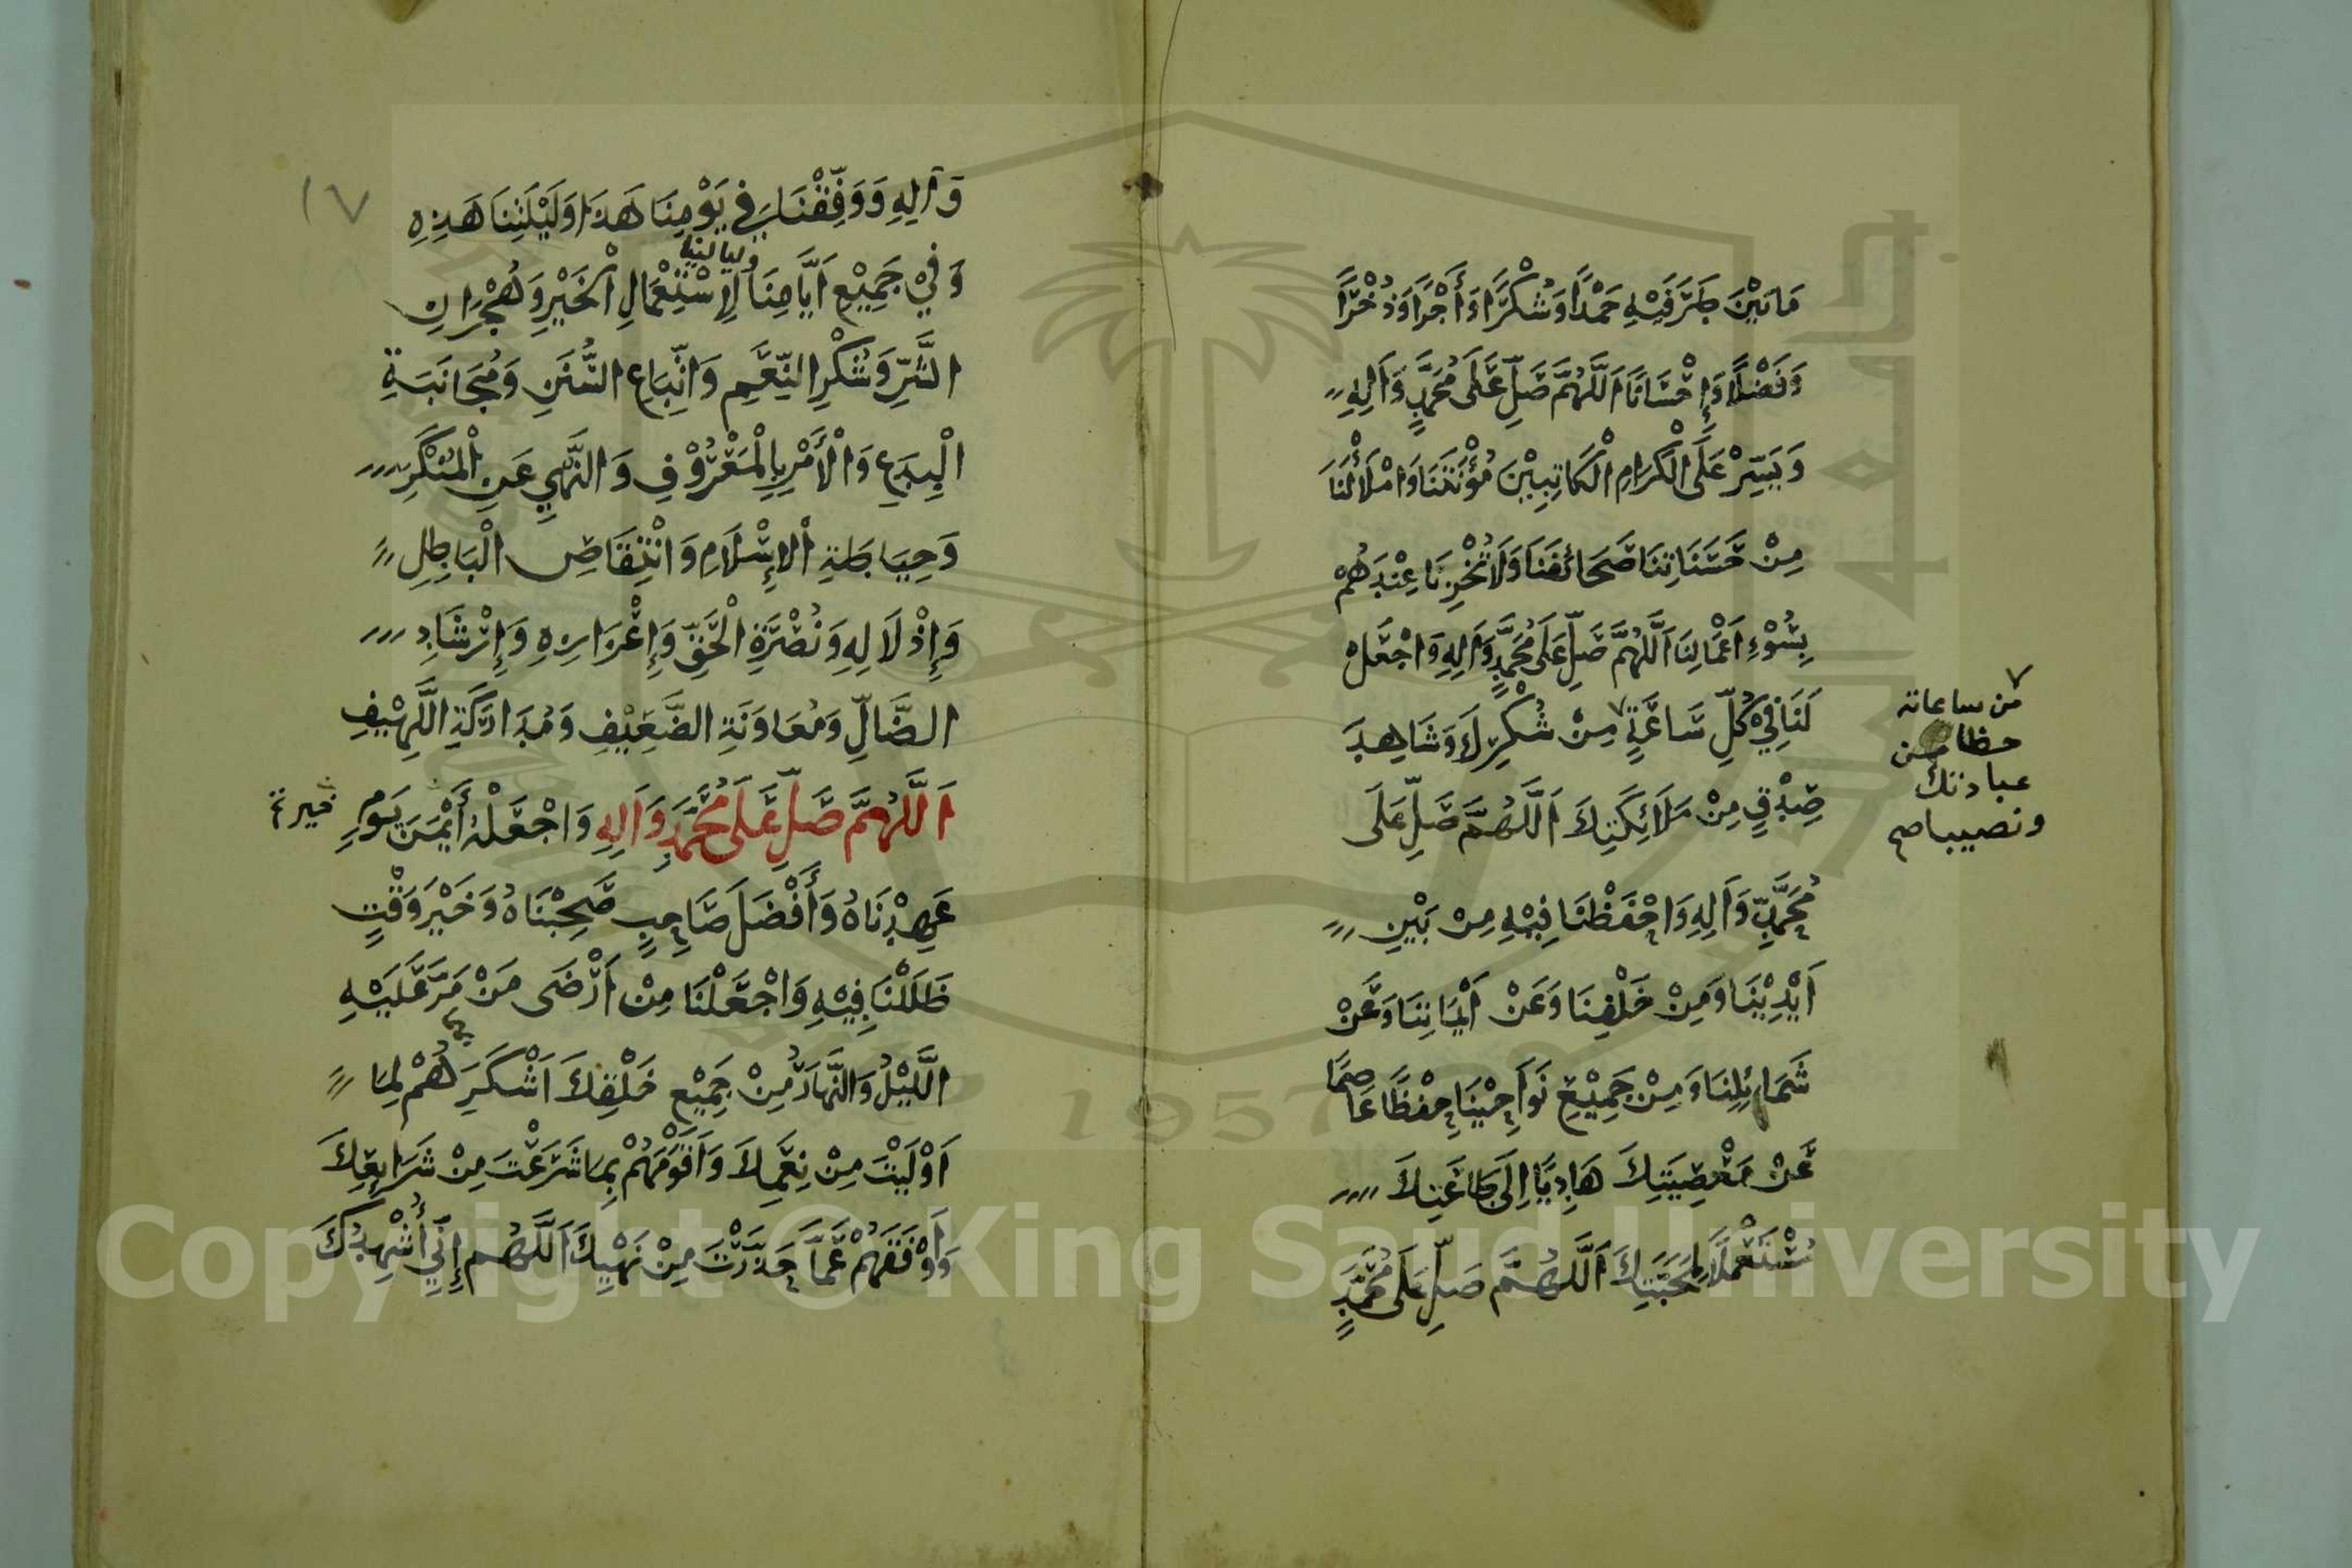 مَا بَيْنَ طَرَفَيْهِ حَمْدًا وَشُكْرًا وَأَجْرًا وَذُخْرًا
وَفَضْلًا وَإِحْسَانًا اَللَّهُمَّ صَلِّ عَلَى مُحَمَّدٍ وَآلِهِ
وَيَسِّرْ عَلَى الْكِرَامِ الْكَاتِبِيْنَ مُؤْنَتَنَا وَامْلَأْ لَنَا
مِنْ حَسَنَاتِنَا صَحَائِفَنَا وَلَا تُخْزِنَا عِنْدَهُمْ
بِسُوْءِ اَعْمَالِنَا اَللَّهُمَّ صَلِّ عَلَى مُحَمَّدٍ وَآلِهِ وَاجْعَلْ
لَنَا فِيْ كُلِّ سَاعَةٍ مِنْ شُكْرِكَ وَشَاهِدَ
من ساعاته
حظا من
عبادتك
ونصيبا صح
صِدْقٍ مِنْ مَلَائِكَتِكَ اَللَّهُمَّ صَلِّ عَلَى
مُحَمَّدٍ وَآلِهِ وَاحْفَظْنَا فِيْهِ مِنْ بَيْنِ
اَيْدِيْنَا وَمِنْ خَلْفِنَا وَعَنْ اَيْمَانِنَا وَعَنْ
شَمَائِلِنَا وَمِنْ جَمِيْعِ نَوَاحِيْنَا حِفْظًا عَاصِمًا
عَنْ مَعْصِيَتِكَ هَادِيًا اِلَى طَاعَتِكَ
مُسْتَعْمَلًا لِمَحَبَّتِكَ اَللَّهُمَّ صَلِّ عَلَى مُحَمَّدٍ
١٧
وَآلِهِ وَوَفِّقْنَا فِي يَوْمِنَا هَذَا وَلَيْلَتِنَا هَذِهِ
وَفِيْ جَمِيْعِ اَيَّامِنَا وليالينا لِاسْتِعْمَالِ الْخَيْرِ وَهُجْرَانِ
الشَّرِّ وَشُكْرِ النِّعَمِ وَاتِّبَاعِ السُّنَنِ وَمُجَانَبَةِ
الْبِدَعِ وَالْأَمْرِ بِالْمَعْرُوْفِ وَالنَّهْيِ عَنِ الْمُنْكَرِ
وَحِيَاطَةِ الْإِسْلَامِ وَانْتِقَاصِ الْبَاطِلِ
وَإِذْلَالِهِ وَنُصْرَةِ الْحَقِّ وَإِعْزَازِهِ وَإِرْشَادِ
الضَّالِّ وَمُعَاوَنَةِ الضَّعِيْفِ وَمُدَارَكَةِ اللَّهِيْفِ
اَللَّهُمَّ صَلِّ عَلَى مُحَمَّدٍ وَآلِهِ وَاجْعَلْهُ أَيْمَنَ يَوْمٍ
عَهِدْنَاهُ وَأَفْضَلَ صَاحِبٍ صَحِبْنَاهُ وَخَيْرَ وَقْتٍ
ظَلَلْنَا فِيْهِ وَاجْعَلْنَا مِنْ اَرْضَى مَنْ مَرَّ عَلَيْهِ
اللَّيْلُ وَالنَّهَارُ مِنْ جَمِيْعِ خَلْقِكَ اَشْكَرَهُمْ لِمَا
اَوْلَيْتَ مِنْ نِعَمِكَ وَاَقْوَمَهُمْ بِمَا شَرَعْتَ مِنْ شَرَايِعِكَ
وَاَوْقَفَهُمْ عَمَّا حَذَّرْتَ مِنْ نَهْيِكَ اَللَّهُم إِنِّي أُشْهِدُكَ
1957
Copyright © King Saud University